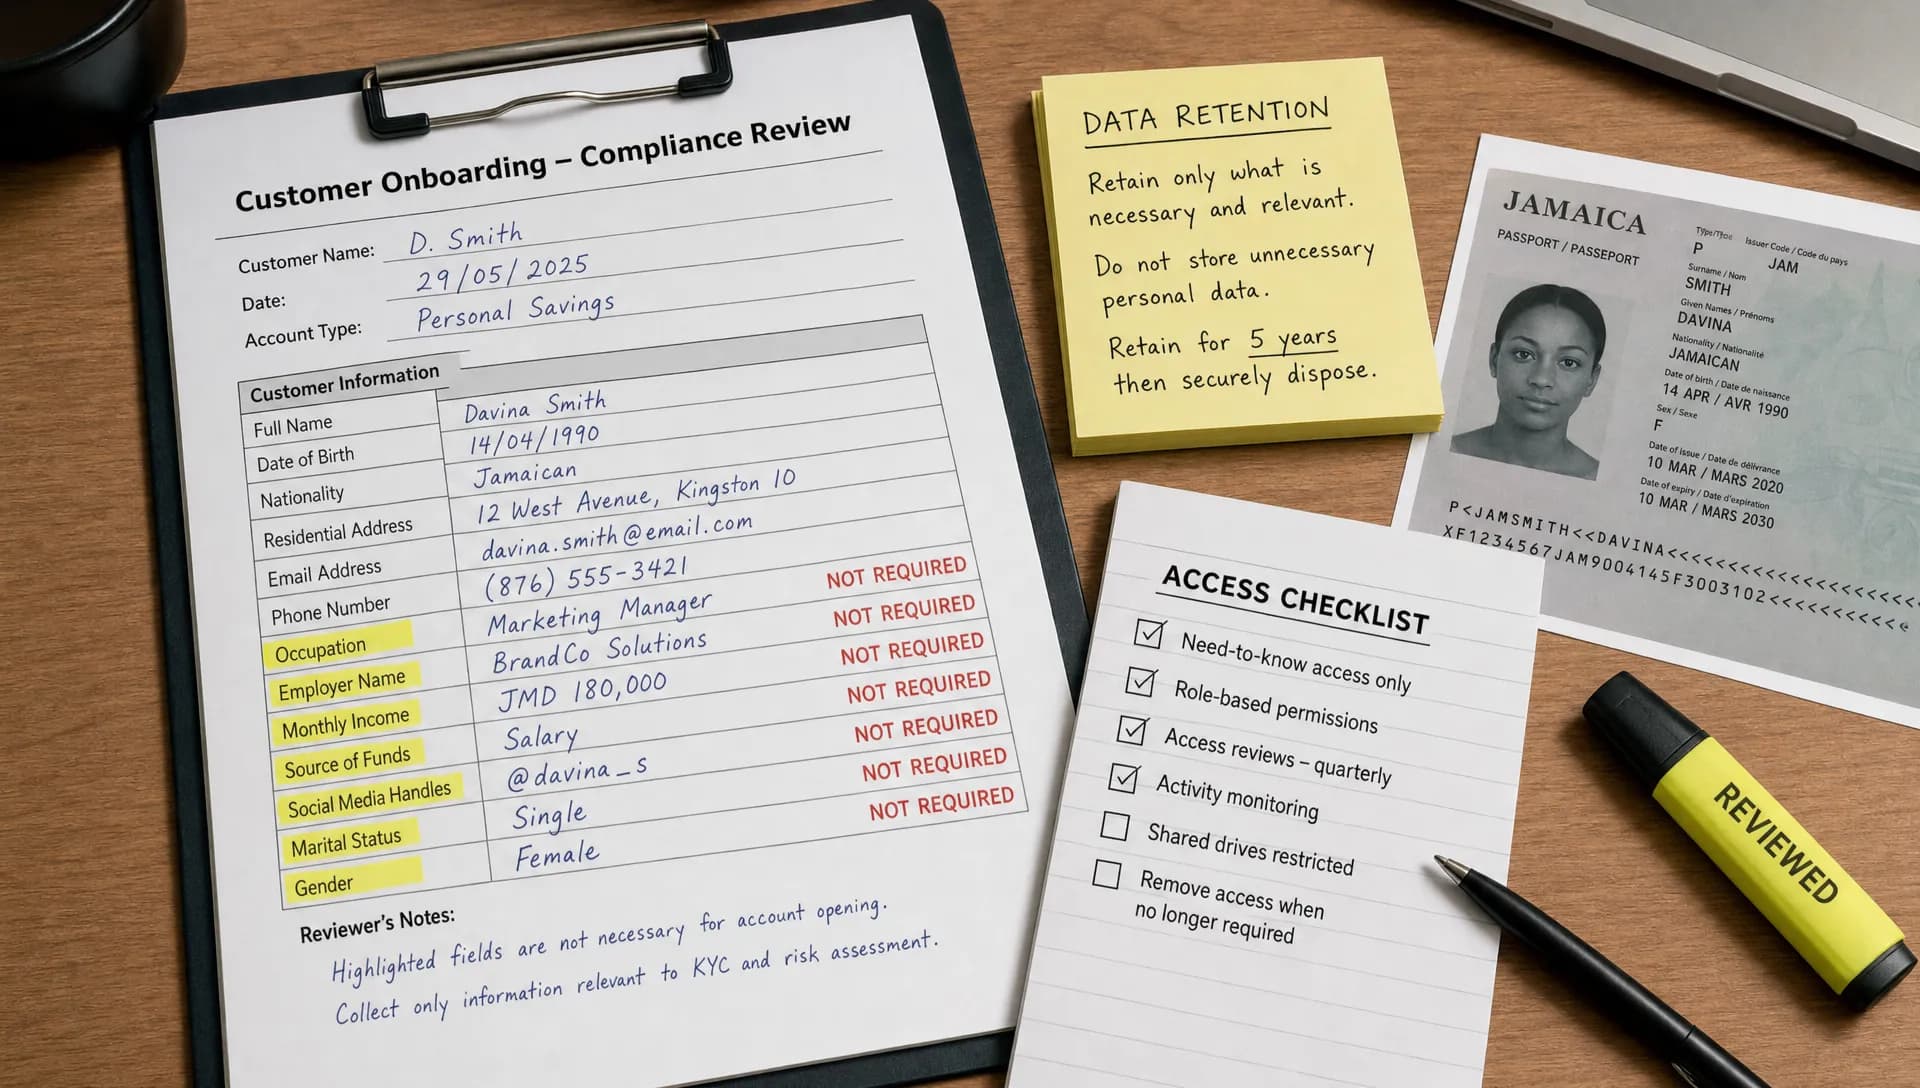 Customer Onboarding – Compliance Review
Customer Name: D. Smith
Date: 29/05/2025
Account Type: Personal Savings
Customer Information
Full Name Davina Smith
Date of Birth 14/04/1990
Nationality Jamaican
Residential Address 12 West Avenue, Kingston 10
Email Address davina.smith@email.com
Phone Number (876) 555-3421
Occupation Marketing Manager NOT REQUIRED
Employer Name BrandCo Solutions NOT REQUIRED
Monthly Income JMD 180,000 NOT REQUIRED
Source of Funds Salary NOT REQUIRED
Social Media Handles @davina_s NOT REQUIRED
Marital Status Single NOT REQUIRED
Gender Female NOT REQUIRED
Reviewer's Notes:
Highlighted fields are not necessary for account opening.
Collect only information relevant to KYC and risk assessment.
DATA RETENTION
Retain only what is
necessary and relevant.
Do not store unnecessary
personal data.
Retain for 5 years
then securely dispose.
JAMAICA
PASSPORT / PASSEPORT
Type/Type Issuer Code / Code du pays
P JAM
Surname / Nom
SMITH
Given Names / Prénoms
DAVINA
Nationality / Nationalité
JAMAICAN
Date of birth / Date de naissance
14 APR / AVR 1990
Sex / Sexe
F
Date of issue / Date de délivrance
10 MAR / MARS 2020
Date of expiry / Date d'expiration
10 MAR / MARS 2030
P<JAMSMITH<<DAVINA<<<<<<<<<<<<<<<<<<<<<
XF1234567JAM9004145F3003102<<<<<<<<<
ACCESS CHECKLIST
Need-to-know access only
Role-based permissions
Access reviews – quarterly
Activity monitoring
Shared drives restricted
Remove access when
no longer required
REVIEWED